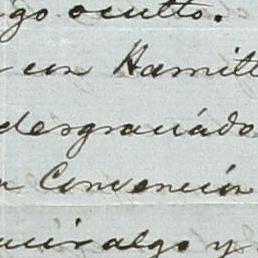 go oculto.
con Hamilt
desgraciado
Convención
algo y